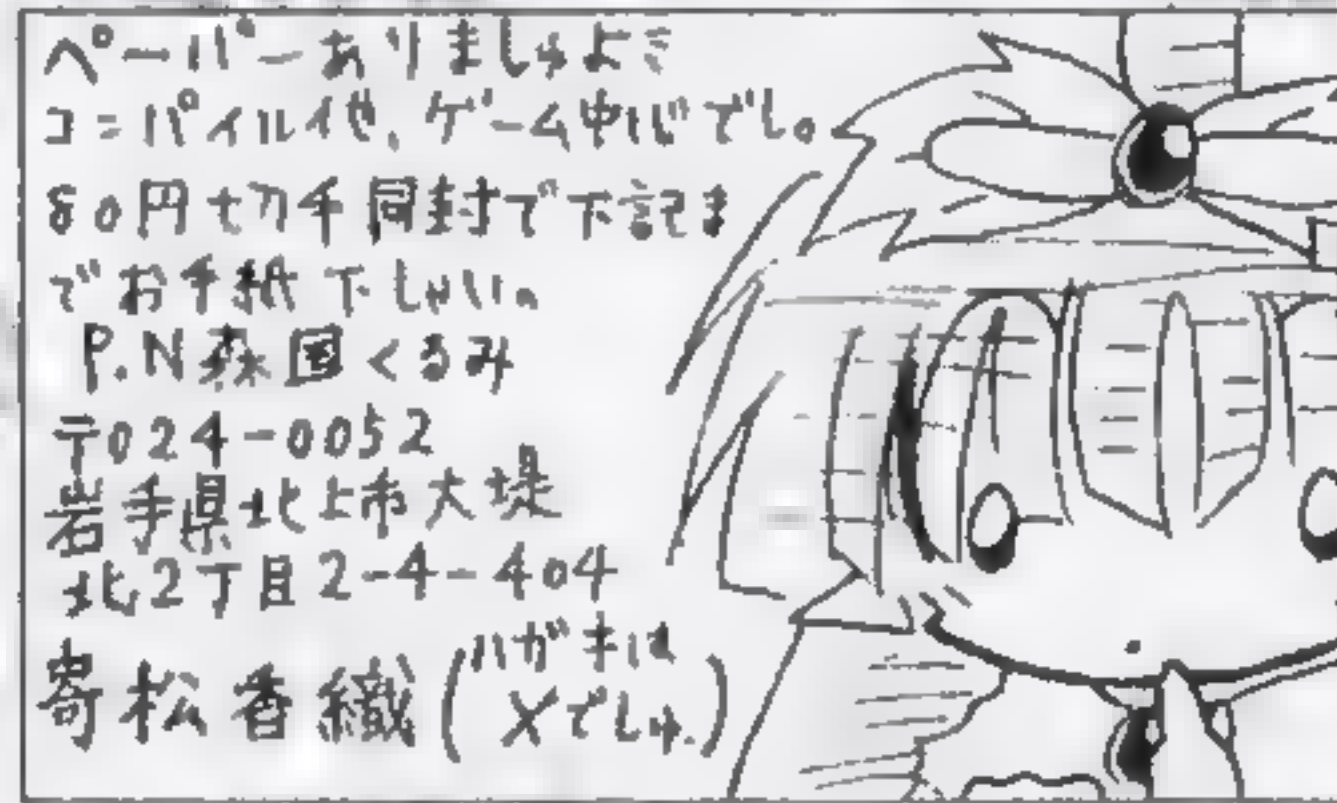 ペーパーありましゅよミ
コンパイル他、ゲーム中心でし。
80円切手同封で下記ま
でお手紙下しゃい。
P.N森国くるみ
〒024-0052
岩手県北上市大堤
北2丁目2-4-404
寄松香織(ハガキは
×でしゅ.)